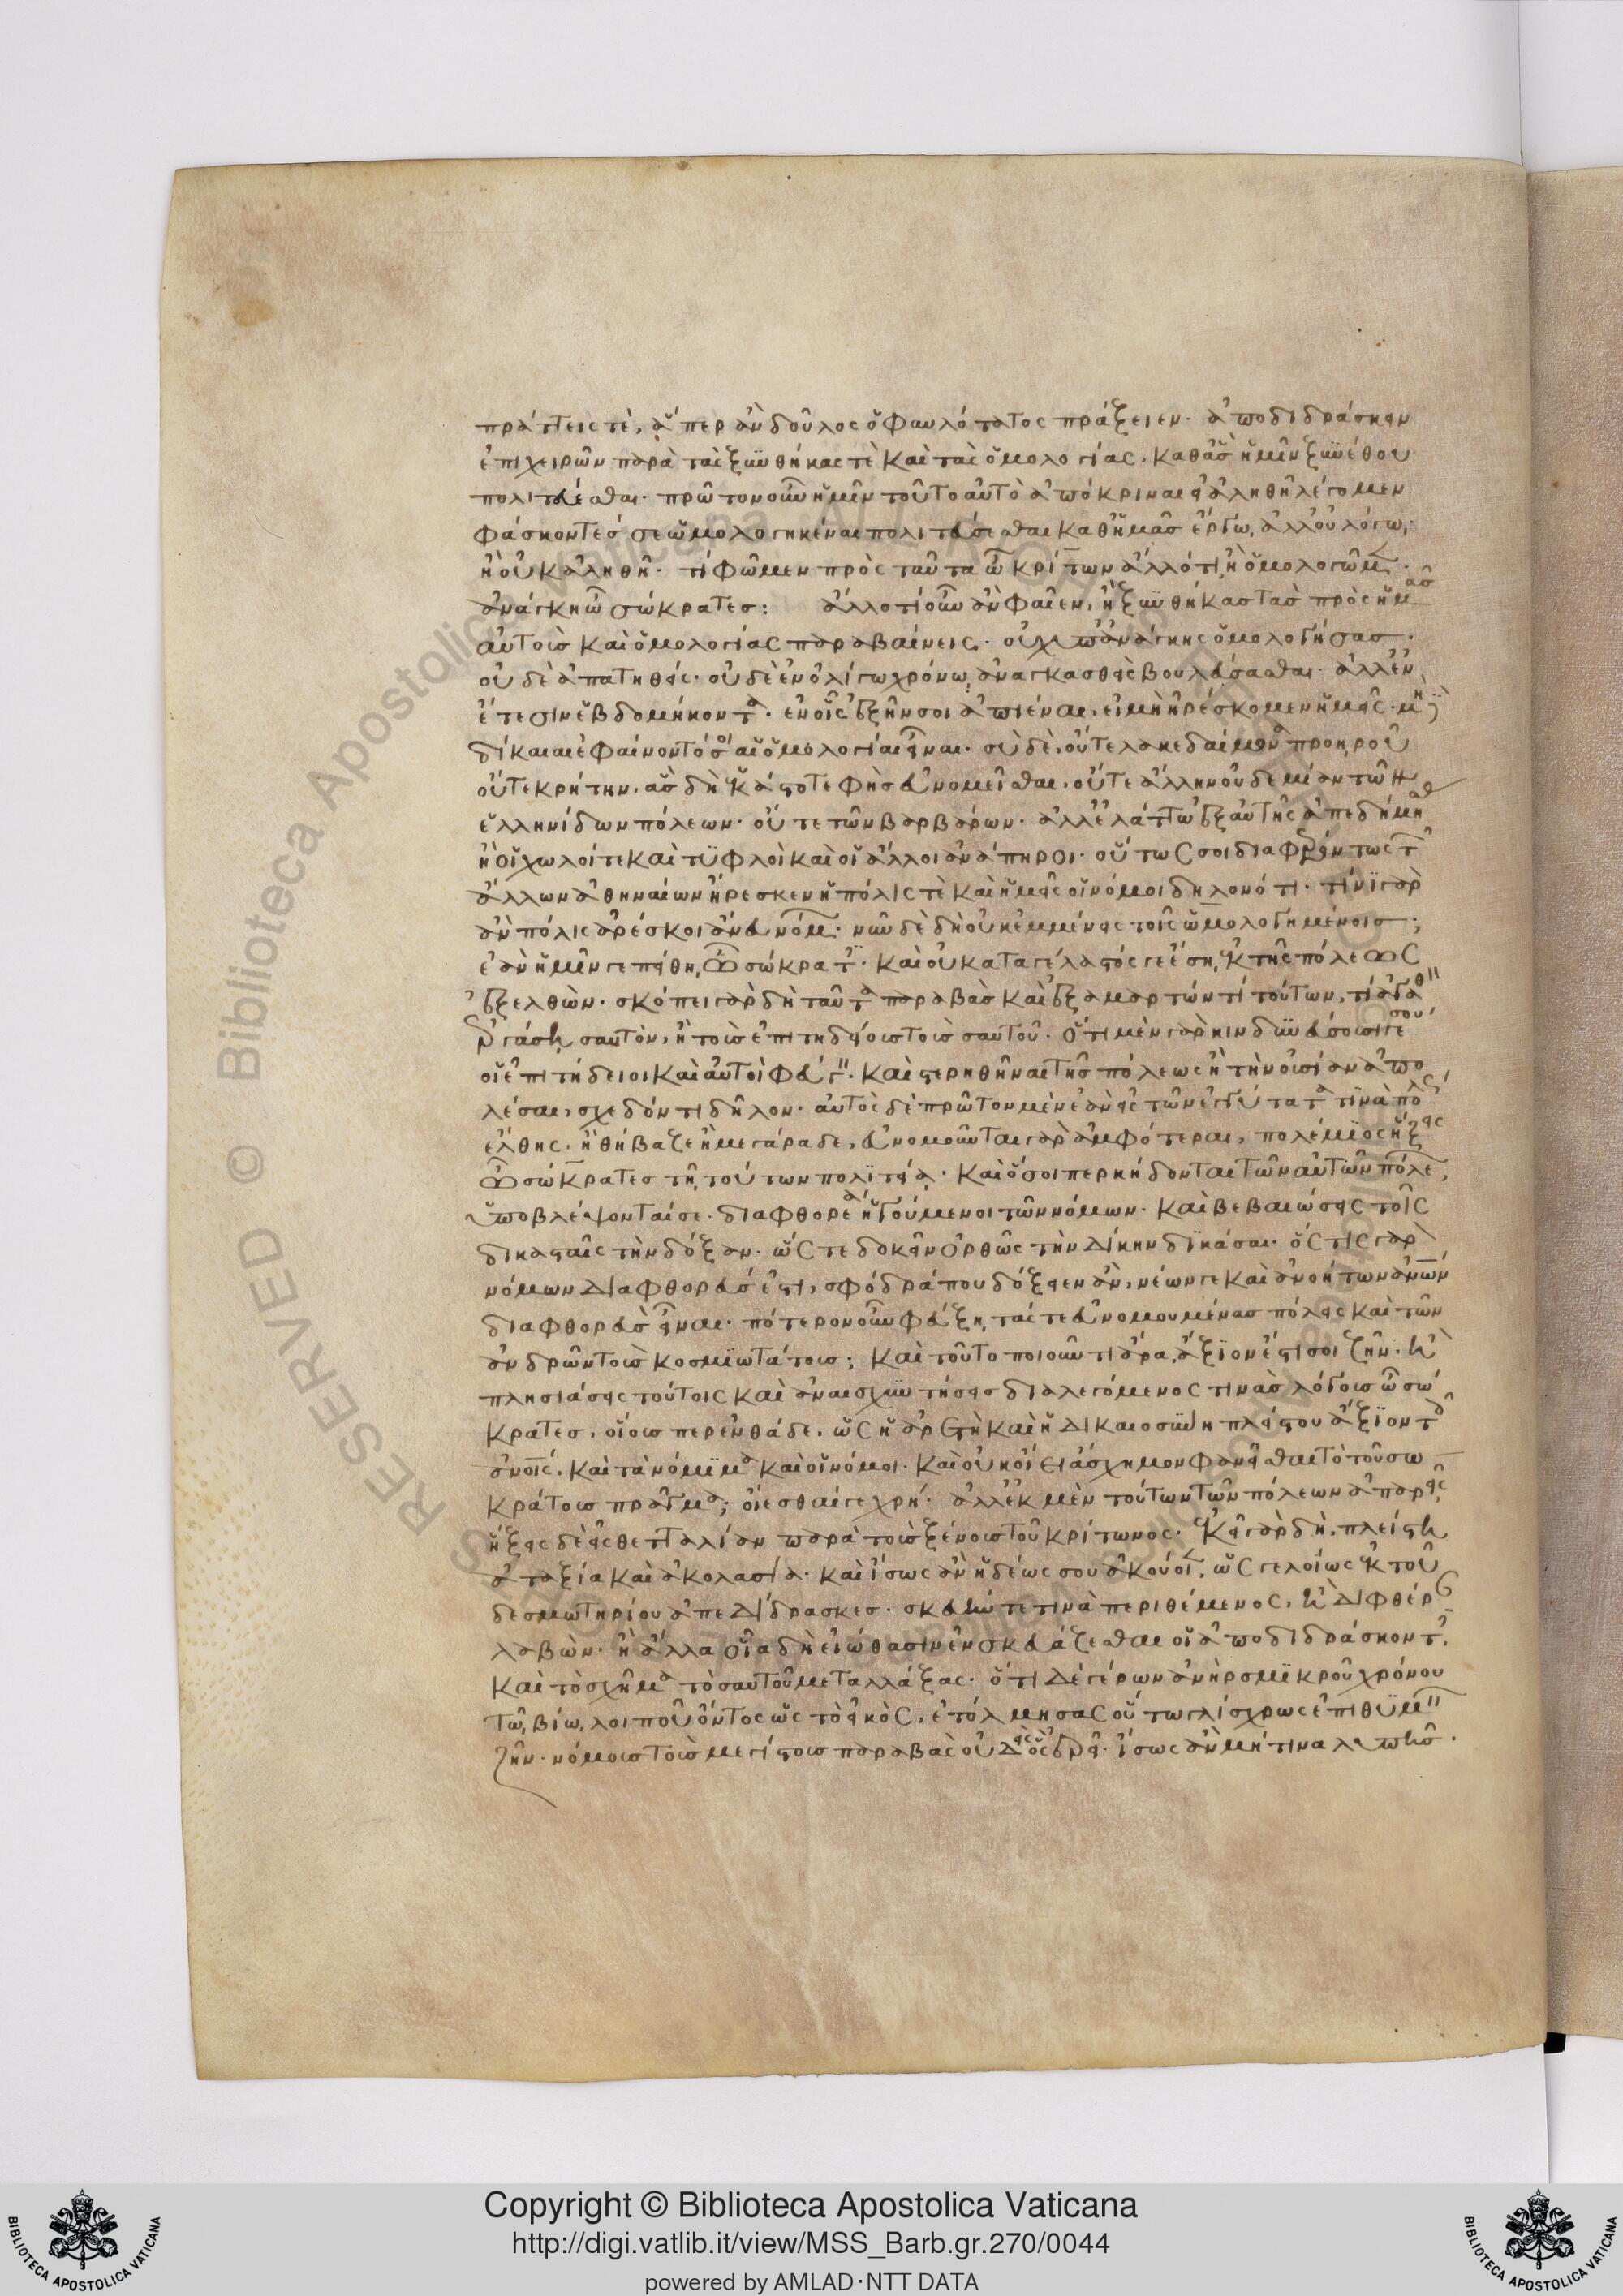 πράττεις τὲ, ἅπερ ἂν δοῦλος ὁ φαυλότατος πράξειεν· ἀποδιδράσκειν
ἐπιχειρῶν παρὰ τὰς ξυνθήκας τὲ καὶ τὰς ὁμολογίας. καθ' ἃς ἡμῖν ξυνέθου
πολιτεύεσθαι· πρῶτον οὖν ἡμῖν τοῦτο αὐτὸ ἀπόκριναι εἰ ἀληθῆ λέγομεν
φάσκοντές σε ὡμολογηκέναι πολιτεύσεσθαι καθ' ἡμᾶς ἔργω, ἀλλ' οὐ λόγω,
ἢ οὐκ ἀληθῆ· τί φῶμεν πρὸς ταῦτα ὦ κρίτων ἄλλό τι ἢ ὁμολογῶμεν·
ἀνάγκη ὦ σώκρατες: ἄλλο τι οὖν ἂν φαῖεν, ἢ ξυνθήκας τὰς πρὸς ἡμᾶς
αὐτοὺς καὶ ὁμολογίας παραβαίνεις· οὐχ ὑπὸ ἀνάγκης ὁμολογήσας·
οὐδὲ ἀπατηθείς· οὐδὲ ἐν ὀλίγω χρόνω, ἀναγκασθεὶς βουλεύσασθαι· ἀλλ' ἐν
ἔτεσιν ἑβδομήκοντα· ἐν οἷς ἐξῆν σοι ἀπιέναι, εἰ μὴ ἠρέσκομεν ἡμεῖς· μὴ δὲ
δίκαιαι ἐφαίνοντό σοι αἱ ὁμολογίαι εἶναι· σὺ δὲ, οὔτε λακεδαίμονα προηροῦ
οὔτε κρήτην. ἃς δὴ ἑκάστοτε φὴς εὐνομεῖσθαι, οὔτε ἄλλην οὐδεμίαν τῶν
ἑλληνίδων πόλεων· οὔτε τῶν βαρβάρων· ἀλλ' ἐλάττω ἐξ αὐτῆς ἀπεδήμησας
ἢ οἱ χωλοί τε καὶ τυφλοὶ καὶ οἱ ἄλλοι ἀνάπηροι· οὕτω σοι διαφερόντως τῶν
ἄλλων ἀθηναίων ἤρεσκεν ἡ πόλις τὲ καὶ ἡμεῖς οἱ νόμοι δηλονότι· τίνι γὰρ
ἂν πόλις ἀρέσκοι ἄνευ νόμων· νῦν δὲ δὴ οὐκ ἐμμένεις τοῖς ὡμολογημένοις;
ἐὰν ἡμῖν γε πείθη, ὦ σώκρατες· καὶ οὐ καταγέλαστός γε ἔση, ἐκ τῆς πόλεως
ἐξελθών· σκόπει γὰρ δὴ ταῦτα παραβὰς καὶ ἐξαμαρτών τι τούτων, τί ἀγαθὸν
ἐργάση σαυτὸν, ἢ τοὺς ἐπιτηδείους τοὺς σαυτοῦ· ὅτι μὲν γὰρ κινδυνεύσουσί γέ σου
οἱ ἐπιτήδειοι καὶ αὐτοὶ φεύγειν· καὶ στερηθῆναι τῆς πόλεως ἢ τὴν οὐσίαν ἀπο
λέσαι, σχεδόν τι δῆλον· αὐτὸς δὲ πρῶτον μὲν ἐὰν εἰς τῶν ἐγγύτατά τινα πόλεων
ἔλθης. ἢ θήβαζε ἢ μέγαράδε, εὐνομοῦνται γὰρ ἀμφότεραι, πολέμιος ἥξεις
ὦ σώκρατες τῆ τούτων πολιτεία· καὶ ὅσοι περ κήδονται τῶν αὑτῶν πόλεων,
ὑποβλέψονταί σε· διαφθορέα ἡγούμενοι τῶν νόμων· καὶ βεβαιώσεις τοῖς
δικασταῖς τὴν δόξαν· ὥστε δοκεῖν ὀρθῶς τὴν δίκην δικάσαι· ὅστις γὰρ
νόμων διαφθορεύς ἐστι, σφόδρά που δόξειεν ἂν, νέων γε καὶ ἀνοήτων ἀνθρώπων
διαφθορεὺς εἶναι· πότερον οὖν φεύξη, τάς τε εὐνομουμένας πόλεις καὶ τῶν
ἀνδρῶν τοὺς κοσμιωτάτους; καὶ τοῦτο ποιοῦντι ἄρα, ἄξιον ἔστι σοι ζῆν· ἢ
πλησιάσεις τούτοις καὶ ἀναισχυντήσεις διαλεγόμενος τινὰς λόγους ὦ σώ
κρατες, οὕσπερ ἐνθάδε, ὡς ἡ ἀρετὴ καὶ ἡ δικαιοσύνη πλείστου ἄξιον τοῖς
ἀνοις. καὶ τὰ νόμιμα καὶ οἱ νόμοι. καὶ οὐκ οἴει ἄσχημον φανεῖσθαι τὸ τοῦ σω
κράτους πρᾶγμα; οἴεσθαί γε χρή· ἀλλ' ἐκ μὲν τούτων τῶν πόλεων ἀπαρεῖς,
ἥξεις δὲ εἰς θετταλίαν παρὰ τοὺς ξένους τοῦ κρίτωνος· ἐκεῖ γὰρ δὴ, πλείστη
ἀταξία καὶ ἀκολασία· καὶ ἴσως ἂν ἡδέως σου ἀκούοιεν, ὡς γελοίως ἐκ τοῦ
δεσμωτηρίου ἀπεδίδρασκες· σκευήν τέ τινα περιθέμενος, ἢ διφθέραν
λαβών· ἢ ἄλλα οἷα δὴ εἰώθασιν ἐνσκευάζεσθαι οἱ ἀποδιδράσκοντες.
καὶ τὸ σχῆμα τὸ σαυτοῦ μεταλλάξας· ὅτι δὲ γέρων ἀνὴρ σμικροῦ χρόνου
τῶ βίω λοιποῦ ὄντος ὡς τὸ εἰκὸς, ἐτόλμησας οὕτω γλίσχρως ἐπιθυμεῖν
ζῆν· νόμους τοὺς μεγίστους παραβὰς οὐδεὶς ὃς ἐρεῖ· ἴσως ἂν μή τινα λυπῆς·
Copyright © Biblioteca Apostolica Vaticana
http://digi.vatlib.it/view/MSS_Barb.gr.270/0044
powered by AMLAD·NTT DATA